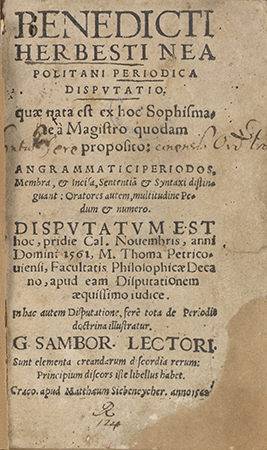 BENEDICTI
HERBESTI NEA
POLITANI PERIODICA
DISPVTATIO,
quæ nata est ex hoc Sophisma-
te à Magistro quodam
proposito:
AN GRAMMATICI PERIODOS,
Membra, & Incisa, Sententia & Syntaxi distin-
guant: Oratores autem, multitudine Pe-
dum & numero.
DISPVTATVM EST
hoc, pridie Cal. Nouembris, anni
Domini 1561, M. Thoma Petrico-
uiensi, Facultatis Philosophicæ Deca
no, apud eam Disputationem
æquissimo iudice.
In hac autem Disputatione, ferè tota de Periodis
doctrina illustratur.
G. SAMBOR. LECTORI.
Sunt elementa creandarum discordia rerum:
Principium discors iste libellus habet.
Craco. apud Matthæum Siebeneycher. anno